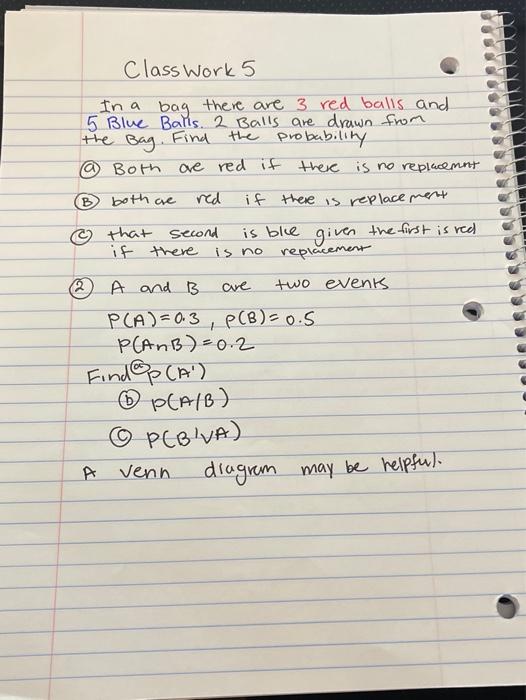 Classwork 5
In a bag there are 3 red balls and
5 Blue Balls. 2 Balls are drawn from
the Bag. Find the probability
ⓐ Both are red if there is no replacemnt
Ⓑ both are red if there is replacement
ⓒ that second is blue given the first is red
if there is no replacement
② A and B are two events
P(A)=0.3, P(B)=0.5
P(A∩B)=0.2
Find ⓐ P(A')
ⓑ P(A/B)
ⓒ P(B'∪A)
A venn diagram may be helpful.